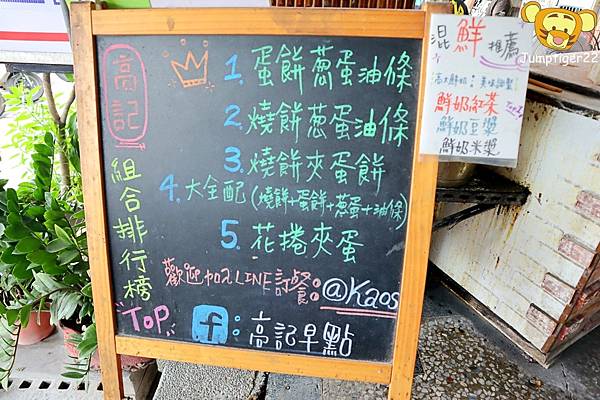 高記
組合排行榜
"TOP"
1. 蛋餅蔥蛋油條
2. 燒餅蔥蛋油條
3. 燒餅夾蛋餅
4. 大全配(燒餅+蛋餅+蔥蛋+油條)
5. 花捲夾蛋
歡迎加入LINE訂餐:@Kaos
f:高記早點
混鮮推薦
鮮奶紅茶
鮮奶豆漿
鮮奶米漿
Jumptiger22